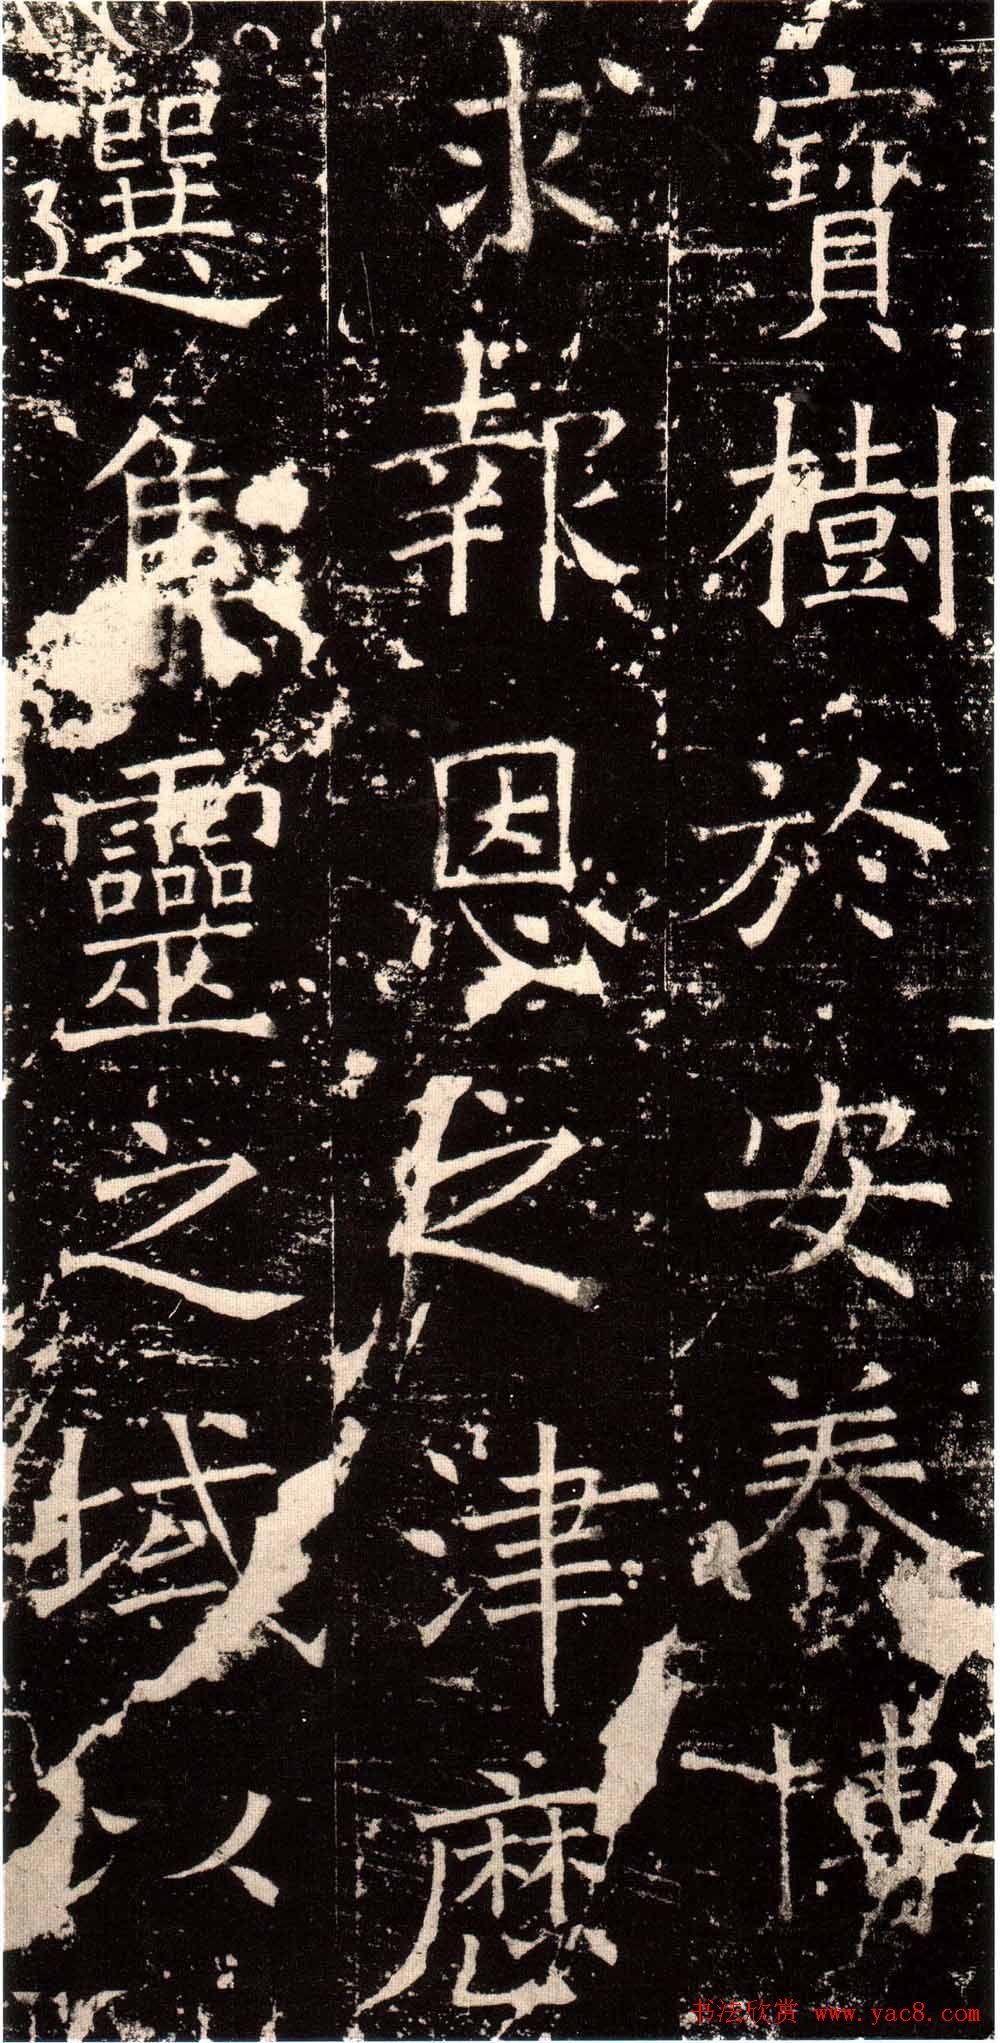 寶樹於安養博
求報恩之津歷
選集靈之域以
书法欣赏 www.yac8.com